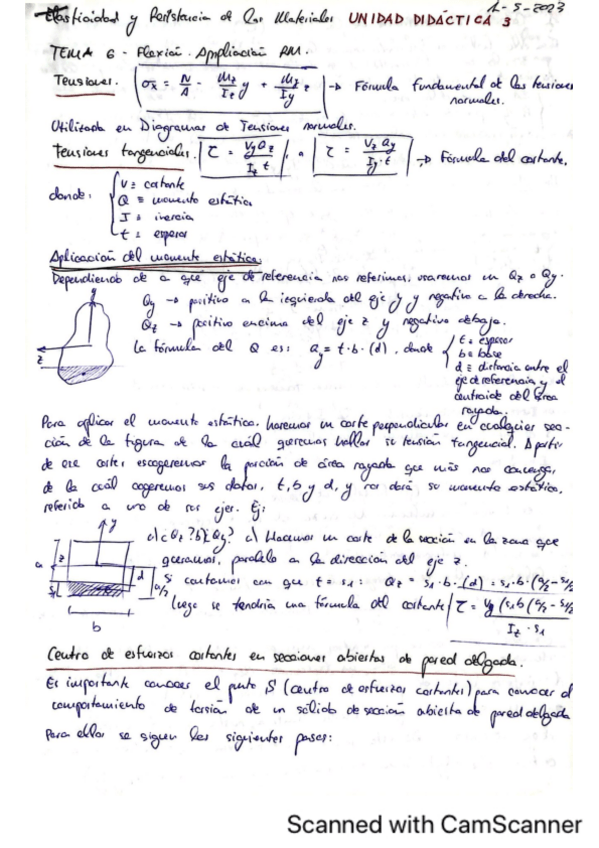 Elasticidad y Resistencia de los Materiales UNIDAD DIDÁCTICA 3
1-5-2023
TEMA 6 - Flexión. Ampliación RM.
Tensiones. σx = N/A - Mz/Iz y + My/Iy z → Fórmula fundamental de las tensiones
normales.
Utilizada en Diagramas de Tensiones normales.
Tensiones tangenciales. τ = Vy Qz / Iz t , o τ = Vz Qy / Iy · t → Fórmula del cortante.
donde: V ≡ cortante
Q ≡ momento estático
I ≡ inercia
t ≡ espesor
Aplicación del momento estático.
Dependiendo de a qué eje de referencia nos referimos, usaremos un Qz o Qy.
Qy → positivo a la izquierda del eje y y negativo a la derecha.
Qz → positivo encima del eje z y negativo debajo.
La fórmula del Q es: Qy = t · b · (d) , donde
t ≡ espesor
b ≡ base
d ≡ distancia entre el
eje de referencia y el
centroide del área
rayada.
y
z
Para aplicar el momento estático, haremos un corte perpendicular en cualquier sec-
ción de la figura de la cuál queremos hallar su tensión tangencial. A partir
de ese corte, escogeremos la porción de área rayada que más nos convenga,
de la cuál cogeremos sus datos, t, b y d, y nos dará su momento estático,
referido a uno de sus ejes. Ej:
a) ¿Qz? b) ¿Qy? a) Hacemos un corte de la sección en la zona que
queramos, paralelo a la dirección del eje z.
Si contamos con que t = s1: Qz = s1 · b · (d) = s1 · b · (a/2 - s1/2
Luego se tendría una fórmula del cortante τ = Vy (s1 b (a/2 - s1/2
Iz · s1
y
z
a
s1
d
a/2
b
Centro de esfuerzos cortantes en secciones abiertas de pared delgada.
Es importante conocer el punto S (centro de esfuerzos cortantes) para conocer el
comportamiento de torsión de un sólido de sección abierta de pared delgada
Para ello se siguen los siguientes pasos:
Scanned with CamScanner